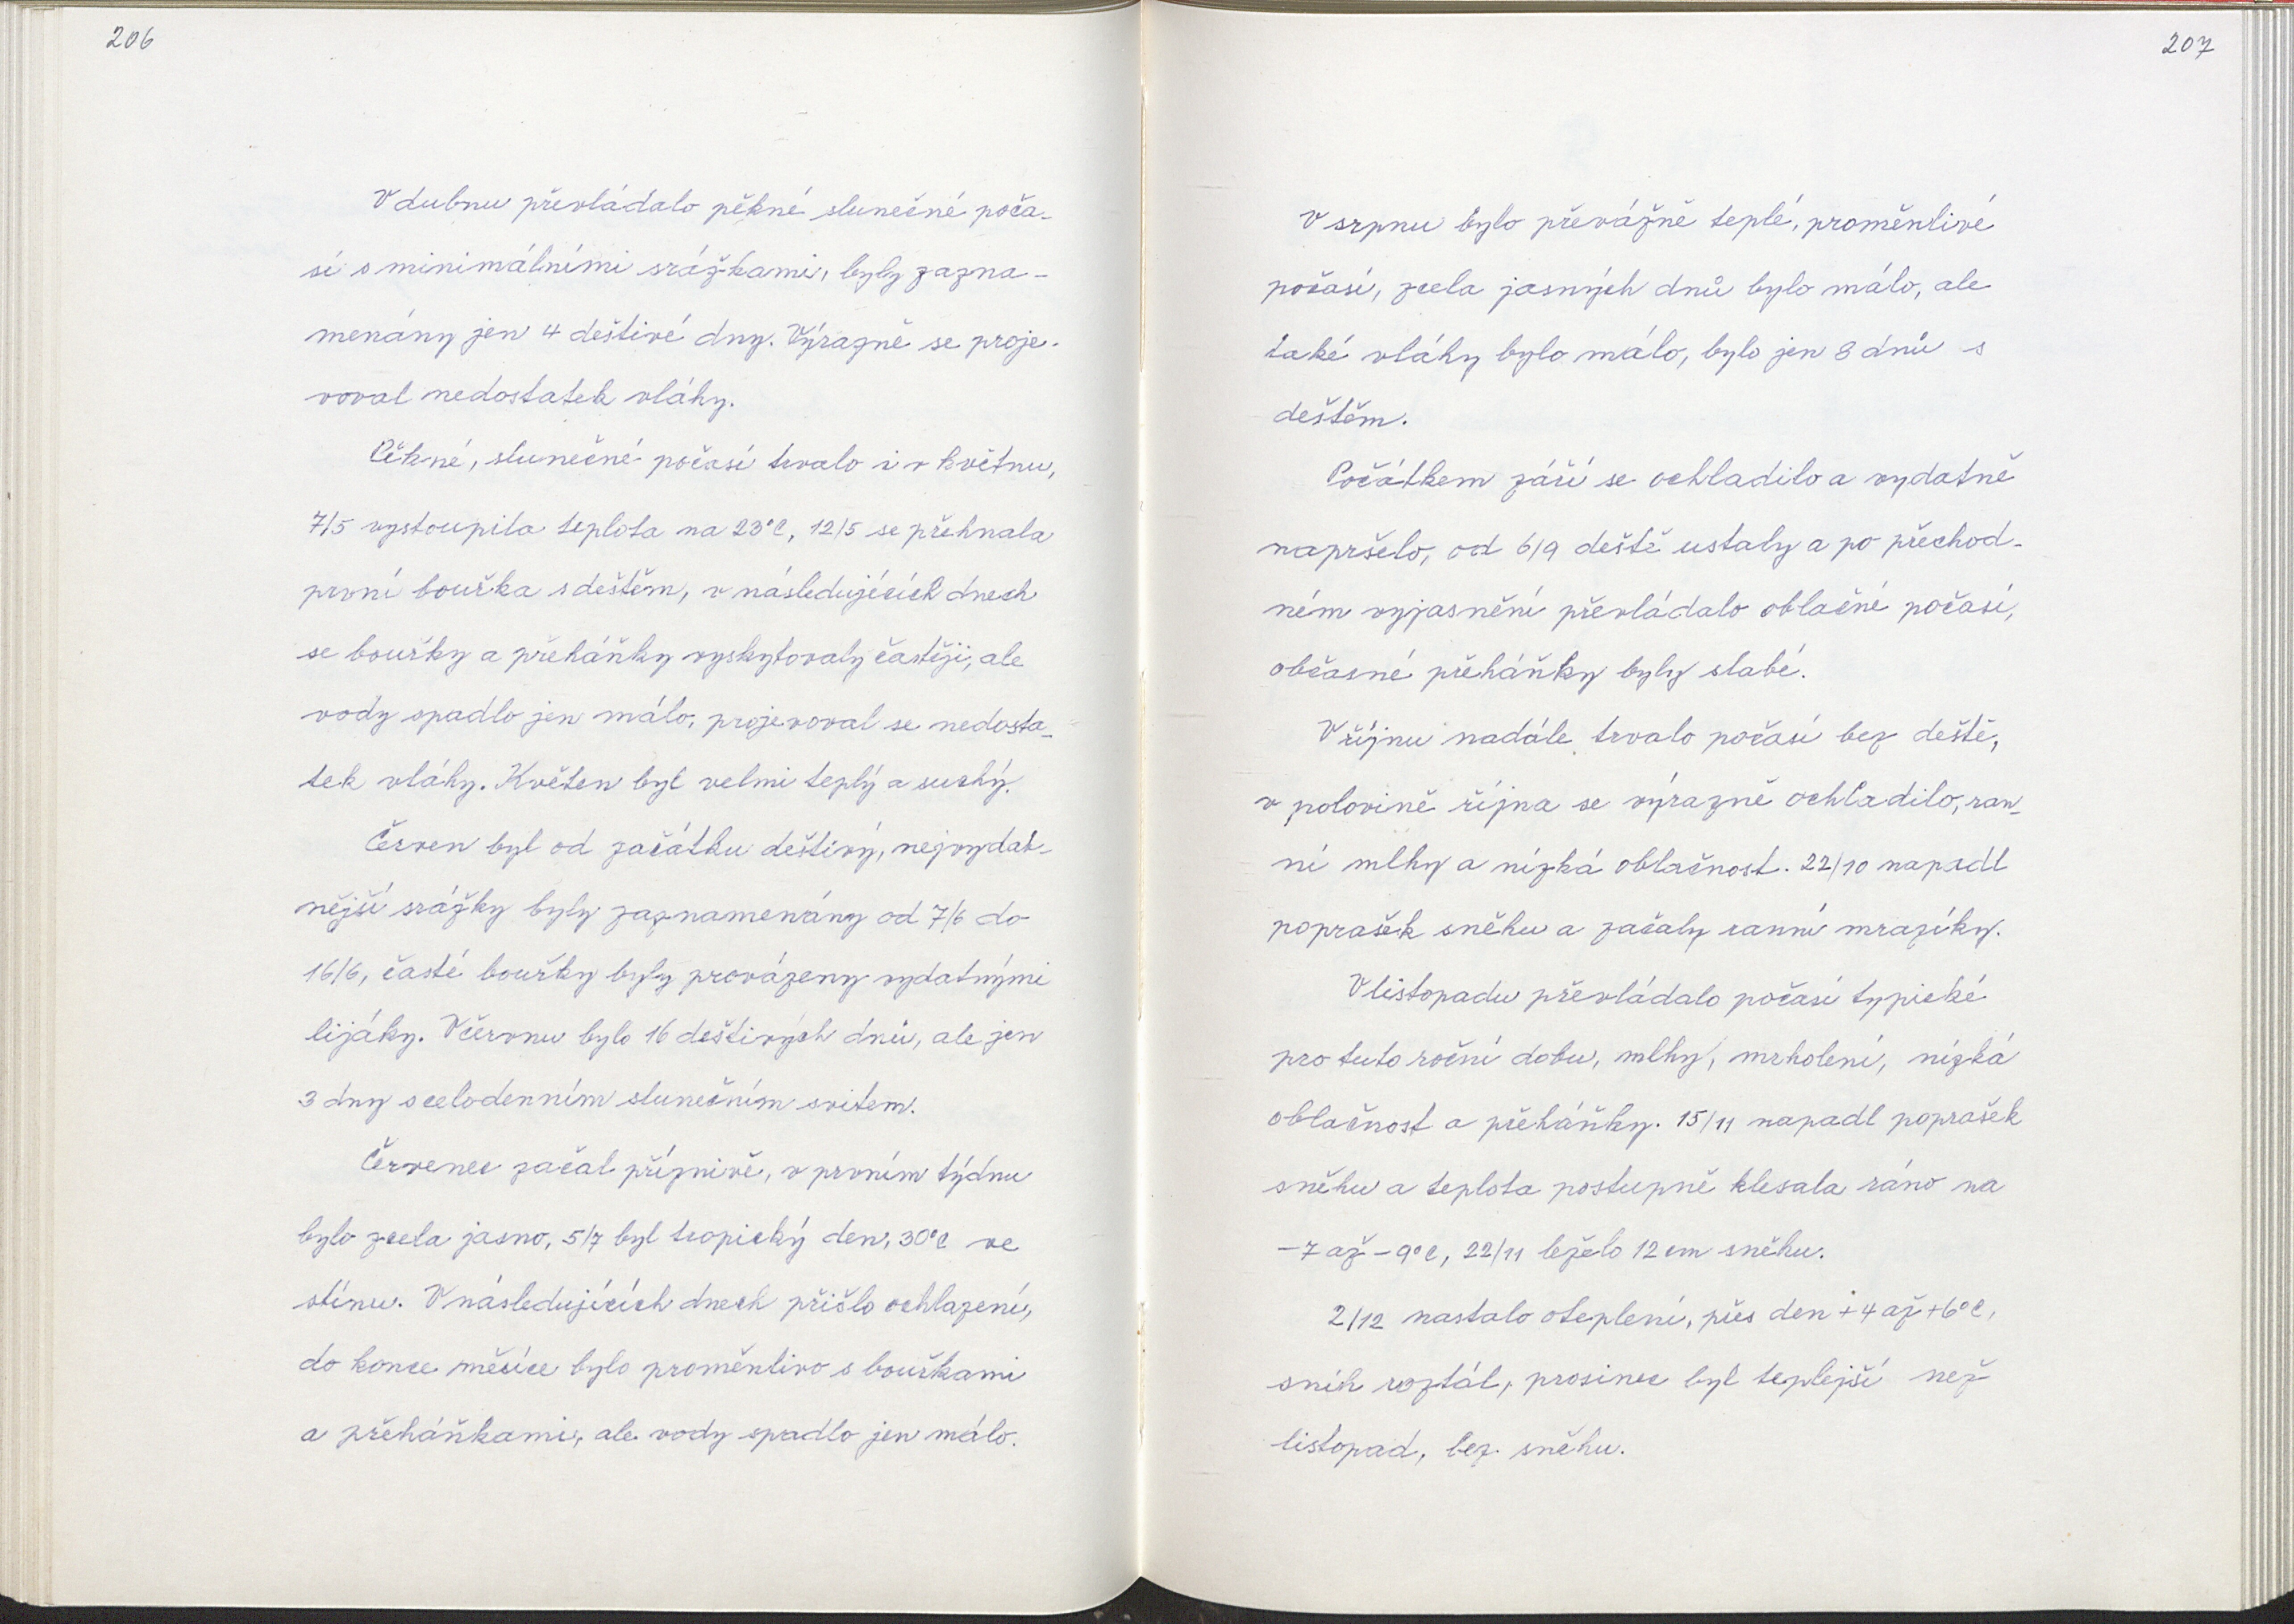 206
V dubnu převládalo pěkné slunečné poča-
sí s minimálními srážkami, byly zazna-
menány jen 4 deštivé dny. Výrazně se proje-
voval nedostatek vláhy.
Pěkné, slunečné počasí trvalo i v květnu,
7/5 vystoupila teplota na 23°C, 12/5 se přehnala
první bouřka s deštěm, v následujících dnech
se bouřky a přeháňky vyskytovaly častěji, ale
vody spadlo jen málo, projevoval se nedosta-
tek vláhy. Květen byl velmi teplý a suchý.
Červen byl od začátku deštivý, nejvydat-
nější srážky byly zaznamenány od 7/6 do
16/6, časté bouřky byly provázeny vydatnými
lijáky. V červnu bylo 16 deštivých dnů, ale jen
3 dny s celodenním slunečním svitem.
Červenec začal příznivě, v prvním týdnu
bylo zcela jasno, 5/7 byl tropický den, 30°C ve
stínu. V následujících dnech přišlo ochlazení,
do konce měsíce bylo proměnlivo s bouřkami
a přeháňkami, ale vody spadlo jen málo.
207
V srpnu bylo převážně teplé, proměnlivé
počasí, zcela jasných dnů bylo málo, ale
také vláhy bylo málo, bylo jen 8 dnů s
deštěm.
Počátkem září se ochladilo a vydatně
napršelo, od 6/9 deště ustaly a po přechod-
ném vyjasnění převládalo oblačné počasí,
občasné přeháňky byly slabé.
V říjnu nadále trvalo počasí bez deště,
v polovině října se výrazně ochladilo, ran-
ní mlhy a nízká oblačnost. 22/10 napadl
poprašek sněhu a začaly ranní mrazíky.
V listopadu převládalo počasí typické
pro tuto roční dobu, mlhy, mrholení, nízká
oblačnost a přeháňky. 15/11 napadl poprašek
sněhu a teplota postupně klesala ráno na
-7 až -9°C, 22/11 leželo 12 cm sněhu.
2/12 nastalo oteplení, přes den +4 až +6°C,
sníh roztál, prosinec byl teplejší než
listopad, bez sněhu.